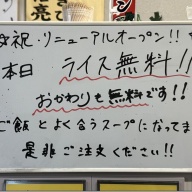 祝・リニューアルオープン!!
本日 ライス無料!!
おかわりも無料です!!
ご飯とよく合うスープになってま
是非ご注文ください!!